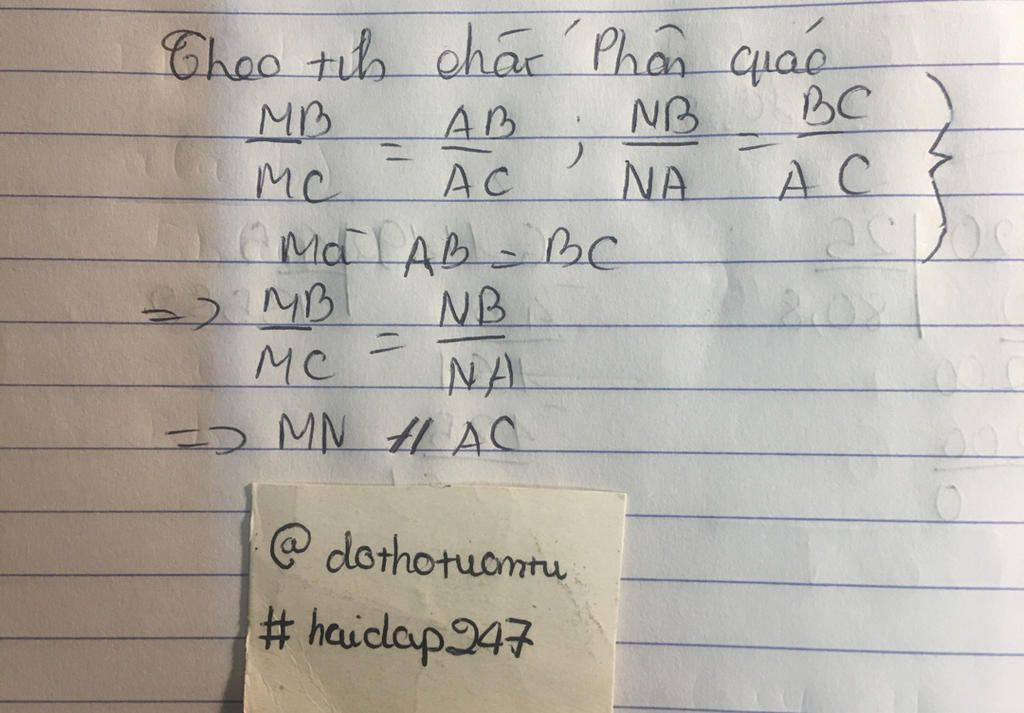 Theo tính chất Phân giác
MB/MC = AB/AC ; NB/NA = BC/AC }
Mà AB = BC
=> MB/MC = NB/NA
=> MN // AC
@ dothotuomtu
# haidap247